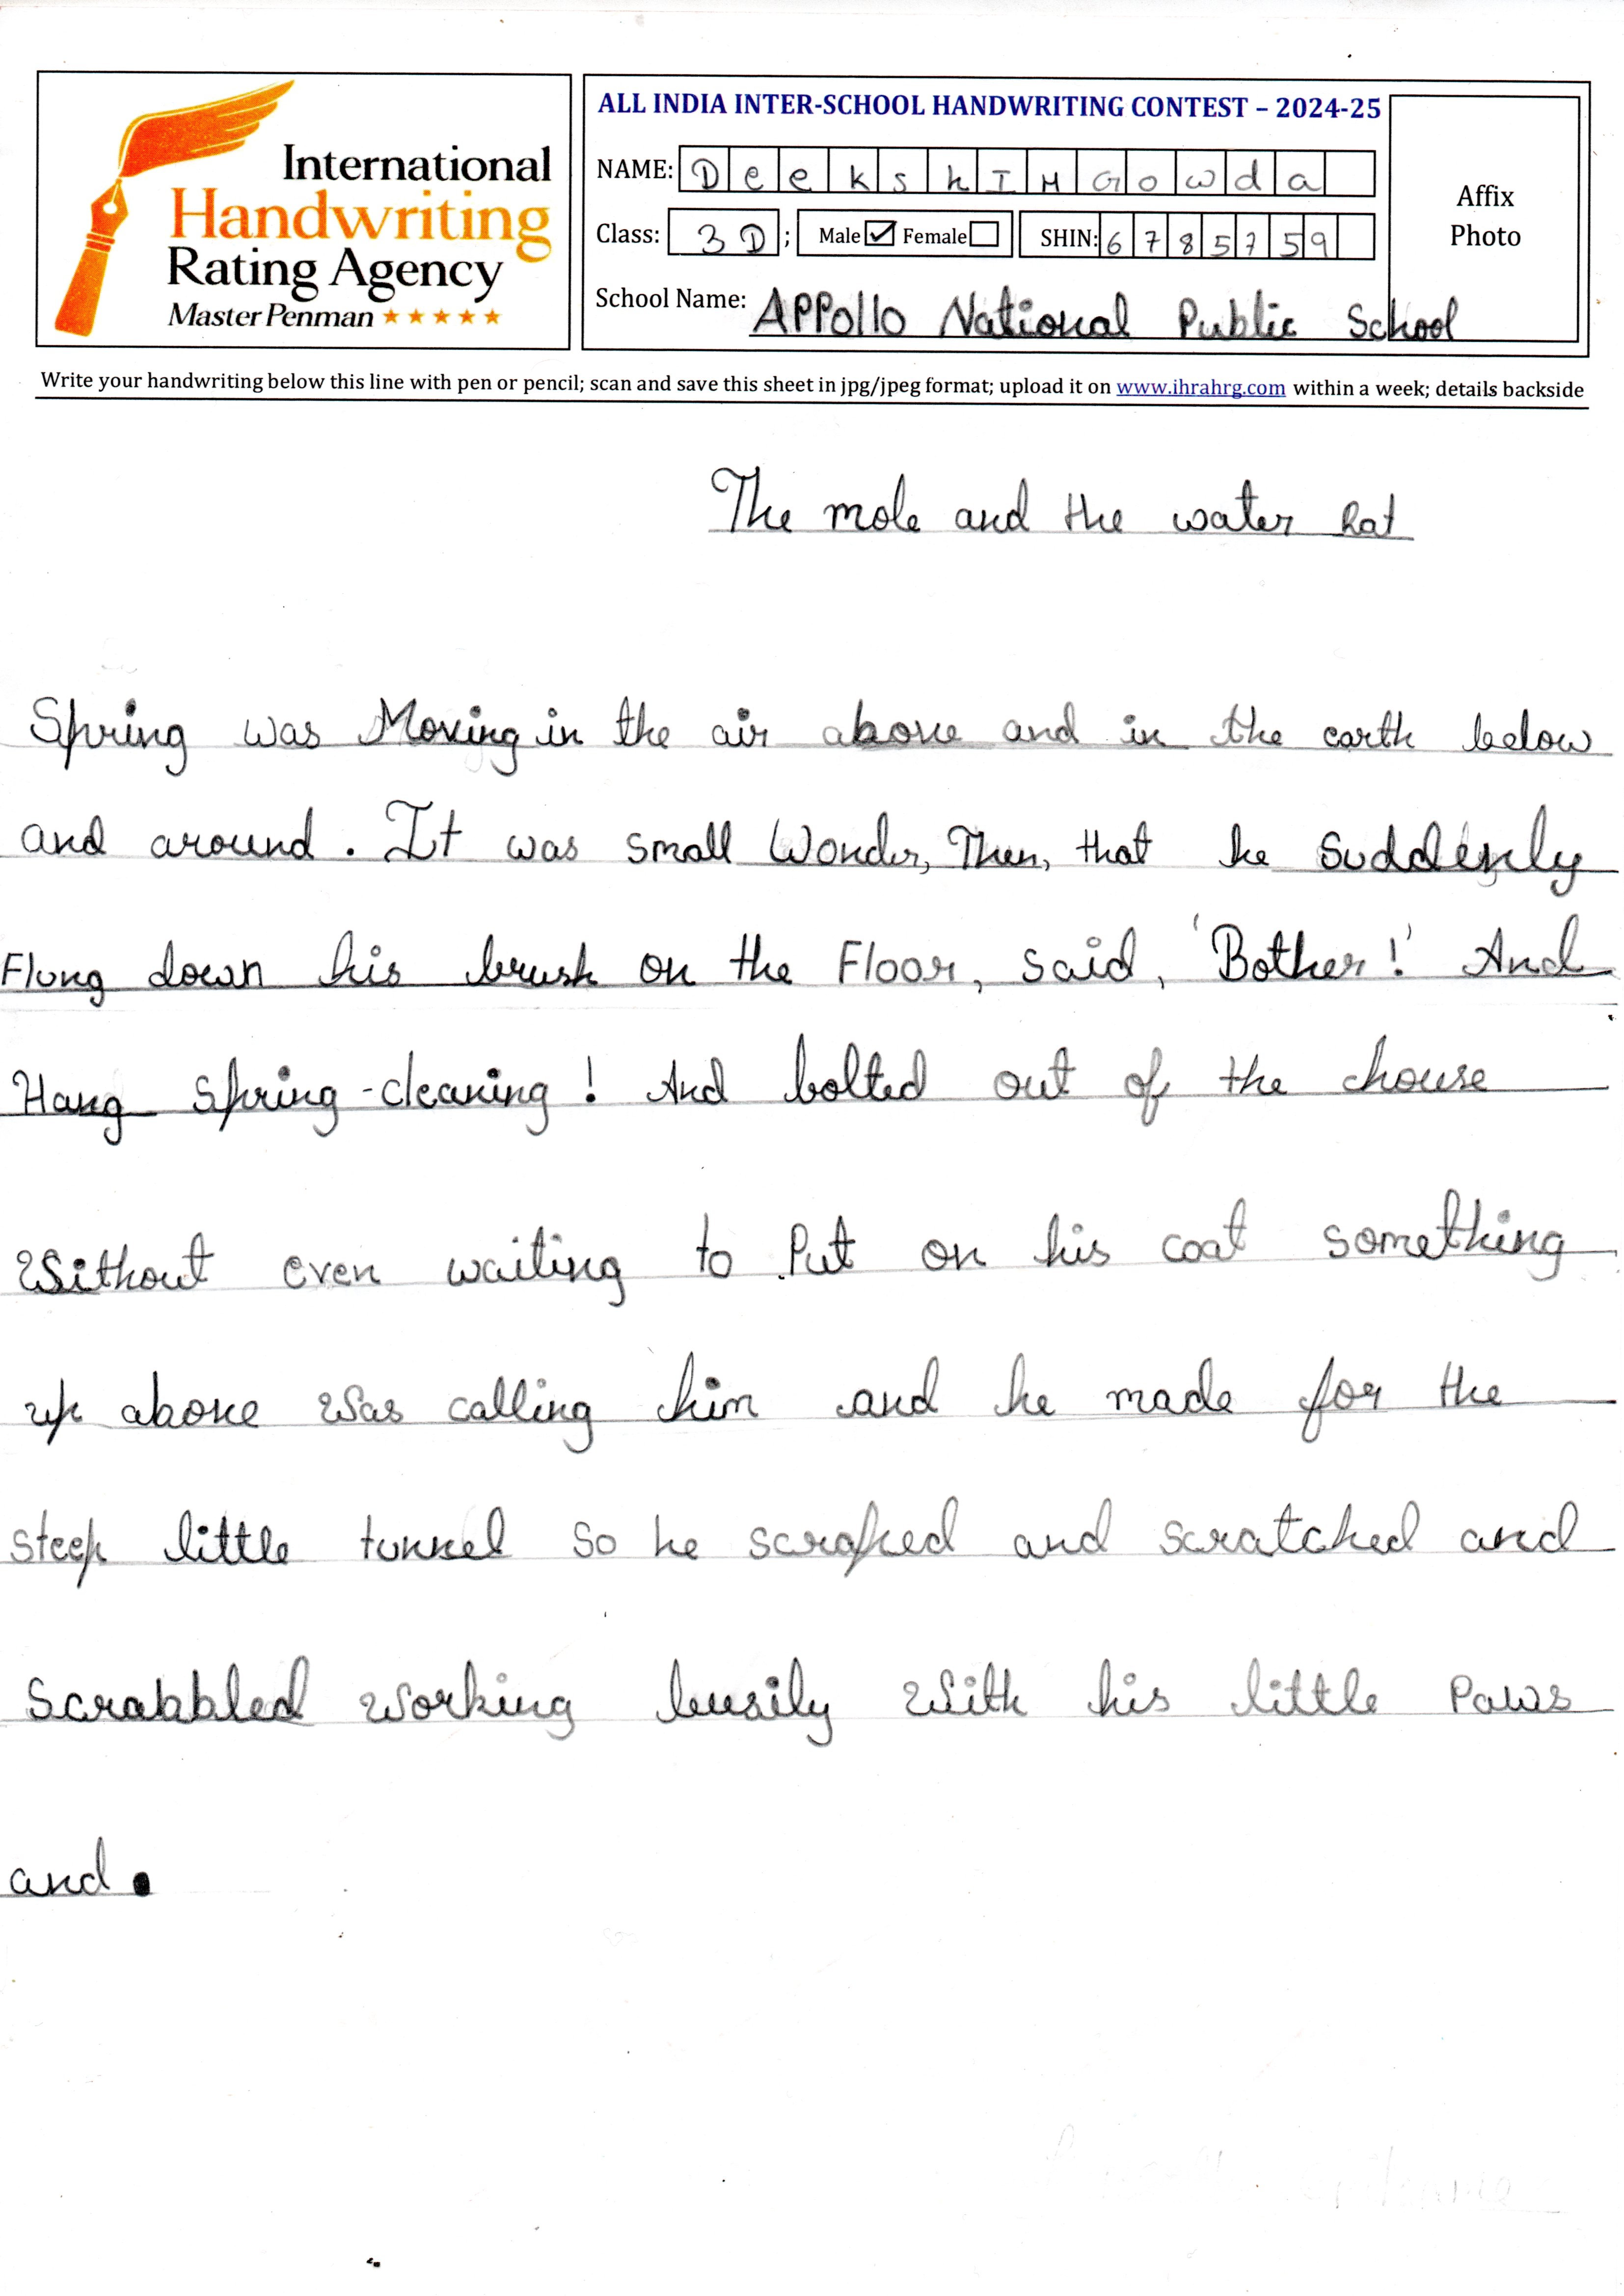 International
Handwriting
Rating Agency
Master Penman ★★★★★
ALL INDIA INTER-SCHOOL HANDWRITING CONTEST – 2024-25
NAME: DeekshIM Gowda
Class: 3 D ; Male ☑ Female ☐ SHIN: 6785759
School Name: APPollo National Public School
Affix
Photo
Write your handwriting below this line with pen or pencil; scan and save this sheet in jpg/jpeg format; upload it on www.ihrahrg.com within a week; details backside
The mole and the water Rat
Spring was Moving in the air above and in the earth below
and around. It was small Wonder, Then, that he suddenly
Flung down his brush on the Floor, said, 'Bother!' And
Hang spring-cleaning! And bolted out of the house
Without even waiting to Put on his coat something
up above Was calling him and he made for the
steep little tunnel so he scraped and scratched and
Scrabbled Working busily With his little Paws
and.